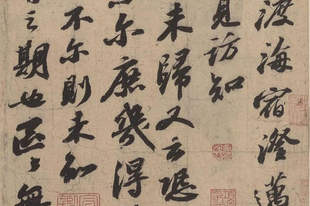 渡海宿澄邁
見訪知
未歸又云恐
尔庶幾得
不尔則未知
之期也區區無